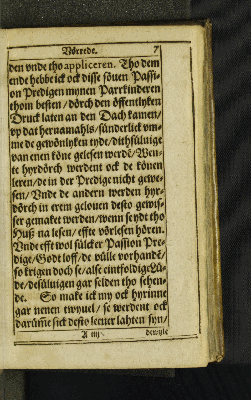 Vörrede. 7
den vnde tho appliceren. Tho dem
ende hebbe ick ock disse söuen Passi-
on Predigen mynen Parrkinderen
thom besten / dörch den öffentlyken
Druck laten an den Dach kamen /
vp dat hernamahls / sünderlick vm-
me de gewönlyken tyde / dithsüluige
van enen köne gelesen werdē / Wen-
te hyrdörch werdent ock de könen
leren / de in der Predige nicht gewe-
sen / Vnde de andern werden hyr-
dörch in erem gelouen desto gewis-
ser gemaket werden / wenn se ydt tho
Huß na lesen / effte vörlesen hören.
Vnde efft wol sülcker Passion Pre-
dige / Godt loff / de vülle vorhandē /
so krigen doch se / alse eintfoldige Lü-
de / desüluigen gar selden tho sehen-
de. So make ick my ock hyrinne
gar nenen twyuel / se werdent ock
darumme sick desto leeuer lahten syn /
A iiij. dewyle